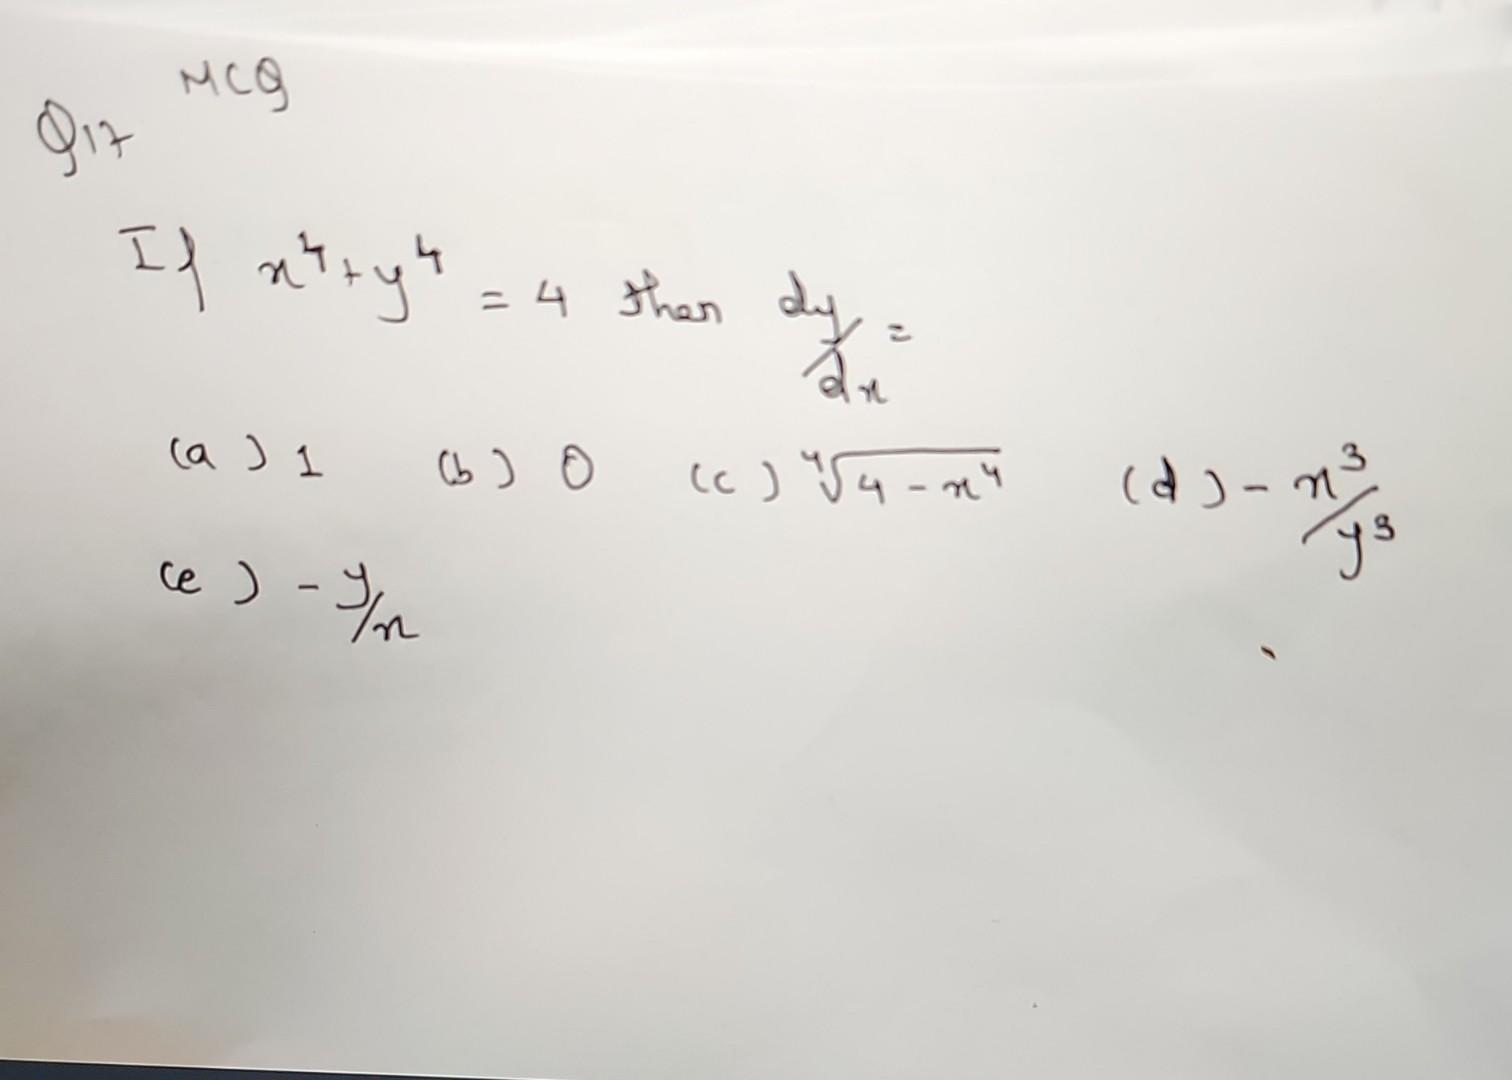 MCQ
Q17
If x⁴+y⁴ = 4 then dy/dx =
(a) 1 (b) 0 (c) ⁴√(4-x⁴) (d) -x³/y³
(e) -y/x